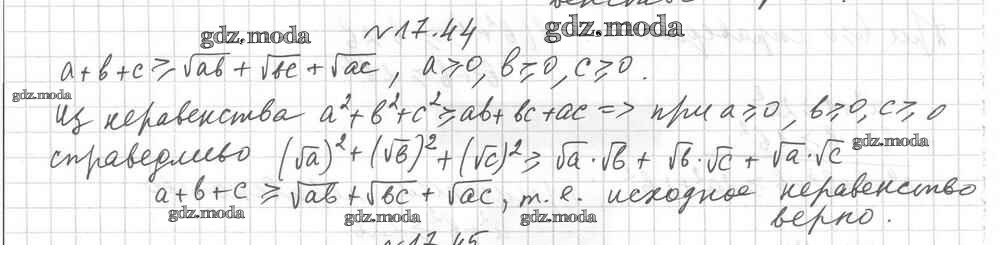 gdz.moda №17.44 gdz.moda
a+b+c ≥ √ab + √bc + √ac, a≥0, b≥0, c≥0.
gdz.moda
Из неравенства a²+b²+c² ≥ ab+bc+ac => при a≥0, b≥0, c≥0
справедливо (√a)²+(√b)²+(√c)² ≥ √a·√b + √b·√c + √a·√c
gdz.moda
a+b+c ≥ √ab+√bc + √ac, т.е. исходное неравенство
gdz.moda gdz.moda gdz.moda верно.
№17.45